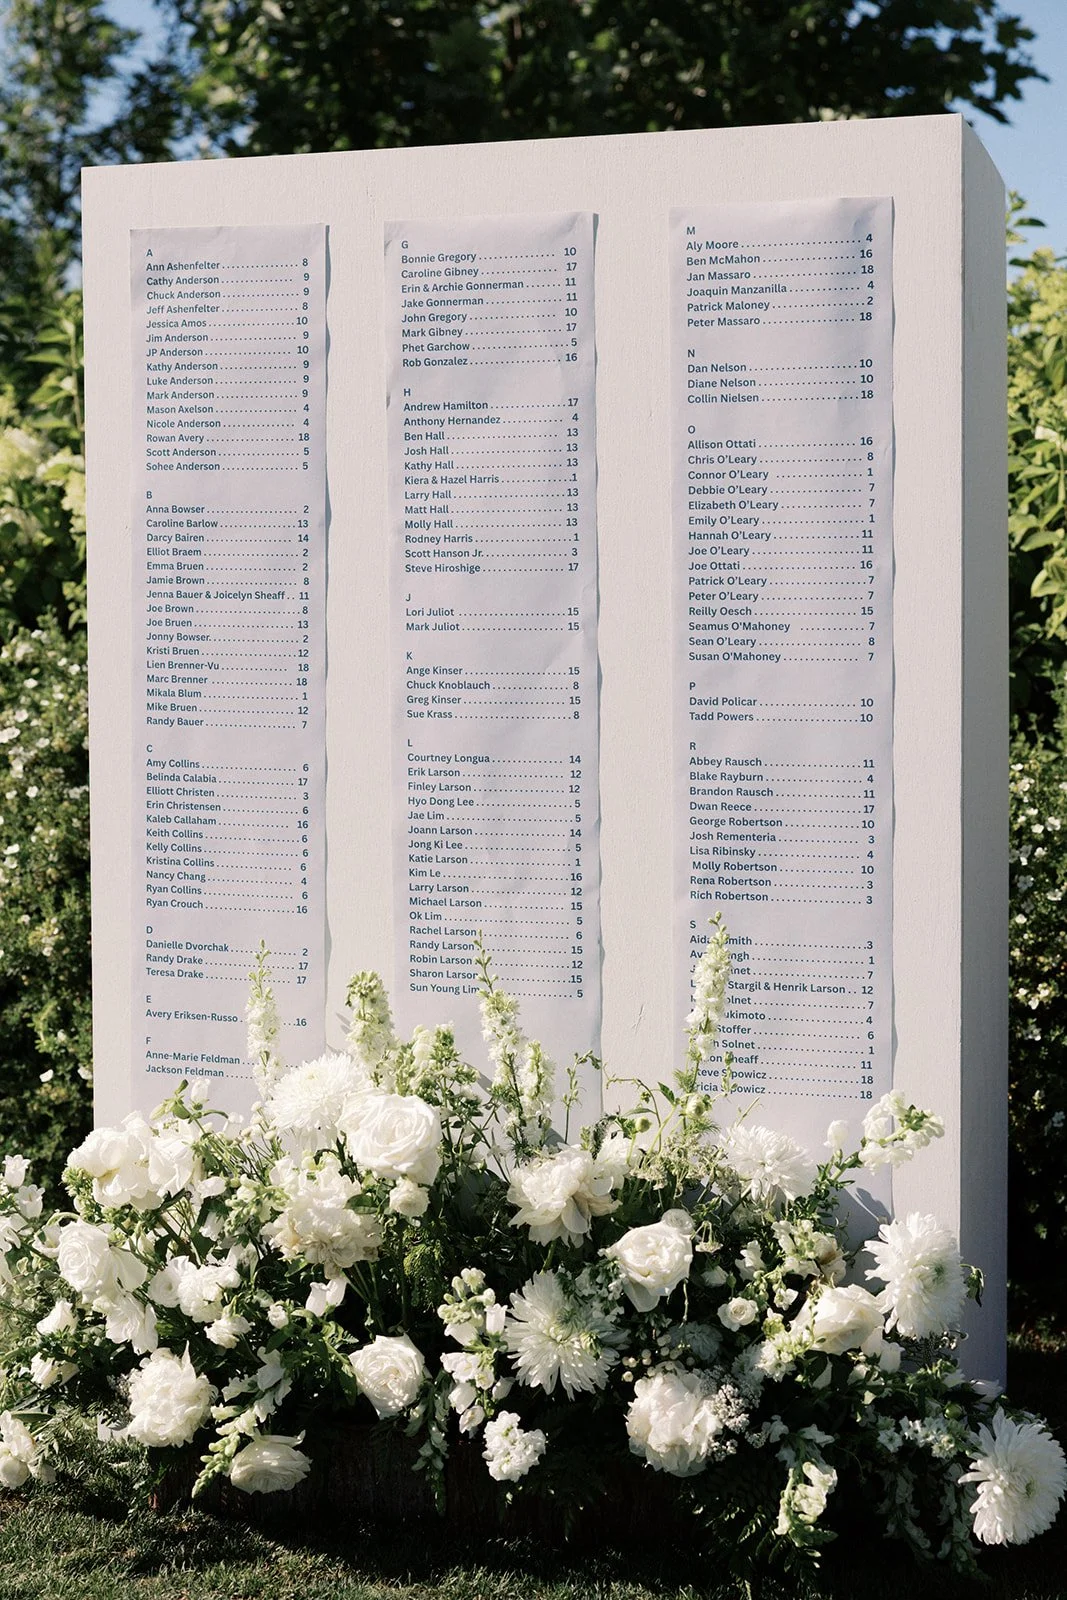 A
Ann Ashenfelter 8
Cathy Anderson 9
Chuck Anderson 9
Jeff Ashenfelter 8
Jessica Amos 10
Jim Anderson 9
JP Anderson 10
Kathy Anderson 9
Luke Anderson 9
Mark Anderson 9
Mason Axelson 4
Nicole Anderson 4
Rowan Avery 18
Scott Anderson 5
Sohee Anderson 5
B
Anna Bowser 2
Caroline Barlow 13
Darcy Bairen 14
Elliot Braem 2
Emma Bruen 2
Jamie Brown 8
Jenna Bauer & Joicelyn Sheaff 11
Joe Brown 8
Joe Bruen 13
Jonny Bowser 2
Kristi Bruen 12
Lien Brenner-Vu 18
Marc Brenner 18
Mikala Blum 1
Mike Bruen 12
Randy Bauer 7
C
Amy Collins 6
Belinda Calabia 17
Elliott Christen 3
Erin Christensen 6
Kaleb Callaham 16
Keith Collins 6
Kelly Collins 6
Kristina Collins 6
Nancy Chang 4
Ryan Collins 6
Ryan Crouch 16
D
Danielle Dvorchak 2
Randy Drake 17
Teresa Drake 17
E
Avery Eriksen-Russo 16
F
Anne-Marie Feldman
Jackson Feldman
G
Bonnie Gregory 10
Caroline Gibney 17
Erin & Archie Gonnerman 11
Jake Gonnerman 11
John Gregory 10
Mark Gibney 17
Phet Garchow 5
Rob Gonzalez 16
H
Andrew Hamilton 17
Anthony Hernandez 4
Ben Hall 13
Josh Hall 13
Kathy Hall 13
Kiera & Hazel Harris 1
Larry Hall 13
Matt Hall 13
Molly Hall 13
Rodney Harris 1
Scott Hanson Jr. 3
Steve Hiroshige 17
J
Lori Juliot 15
Mark Juliot 15
K
Ange Kinser 15
Chuck Knoblauch 8
Greg Kinser 15
Sue Krass 8
L
Courtney Longua 14
Erik Larson 12
Finley Larson 12
Hyo Dong Lee 5
Jae Lim 5
Joann Larson 14
Jong Ki Lee 5
Katie Larson 1
Kim Le 16
Larry Larson 12
Michael Larson 15
Ok Lim 5
Rachel Larson 6
Randy Larson 15
Robin Larson 12
Sharon Larson 15
Sun Young Lim 5
M
Aly Moore 4
Ben McMahon 16
Jan Massaro 18
Joaquin Manzanilla 4
Patrick Maloney 2
Peter Massaro 18
N
Dan Nelson 10
Diane Nelson 10
Collin Nielsen 18
O
Allison Ottati 16
Chris O'Leary 8
Connor O'Leary 1
Debbie O'Leary 7
Elizabeth O'Leary 7
Emily O'Leary 1
Hannah O'Leary 11
Joe O'Leary 11
Joe Ottati 16
Patrick O'Leary 7
Peter O'Leary 7
Reilly Oesch 15
Seamus O'Mahoney 7
Sean O'Leary 8
Susan O'Mahoney 7
P
David Policar 10
Tadd Powers 10
R
Abbey Rausch 11
Blake Rayburn 4
Brandon Rausch 11
Dwan Reece 17
George Robertson 10
Josh Rementeria 3
Lisa Ribinsky 4
Molly Robertson 10
Rena Robertson 3
Rich Robertson 3
S
Smith 3
1
7
Stargil & Henrik Larson 12
7
4
Stoffer 6
Solnet 1
Sheaff 11
Sipowicz 18
Sipowicz 18